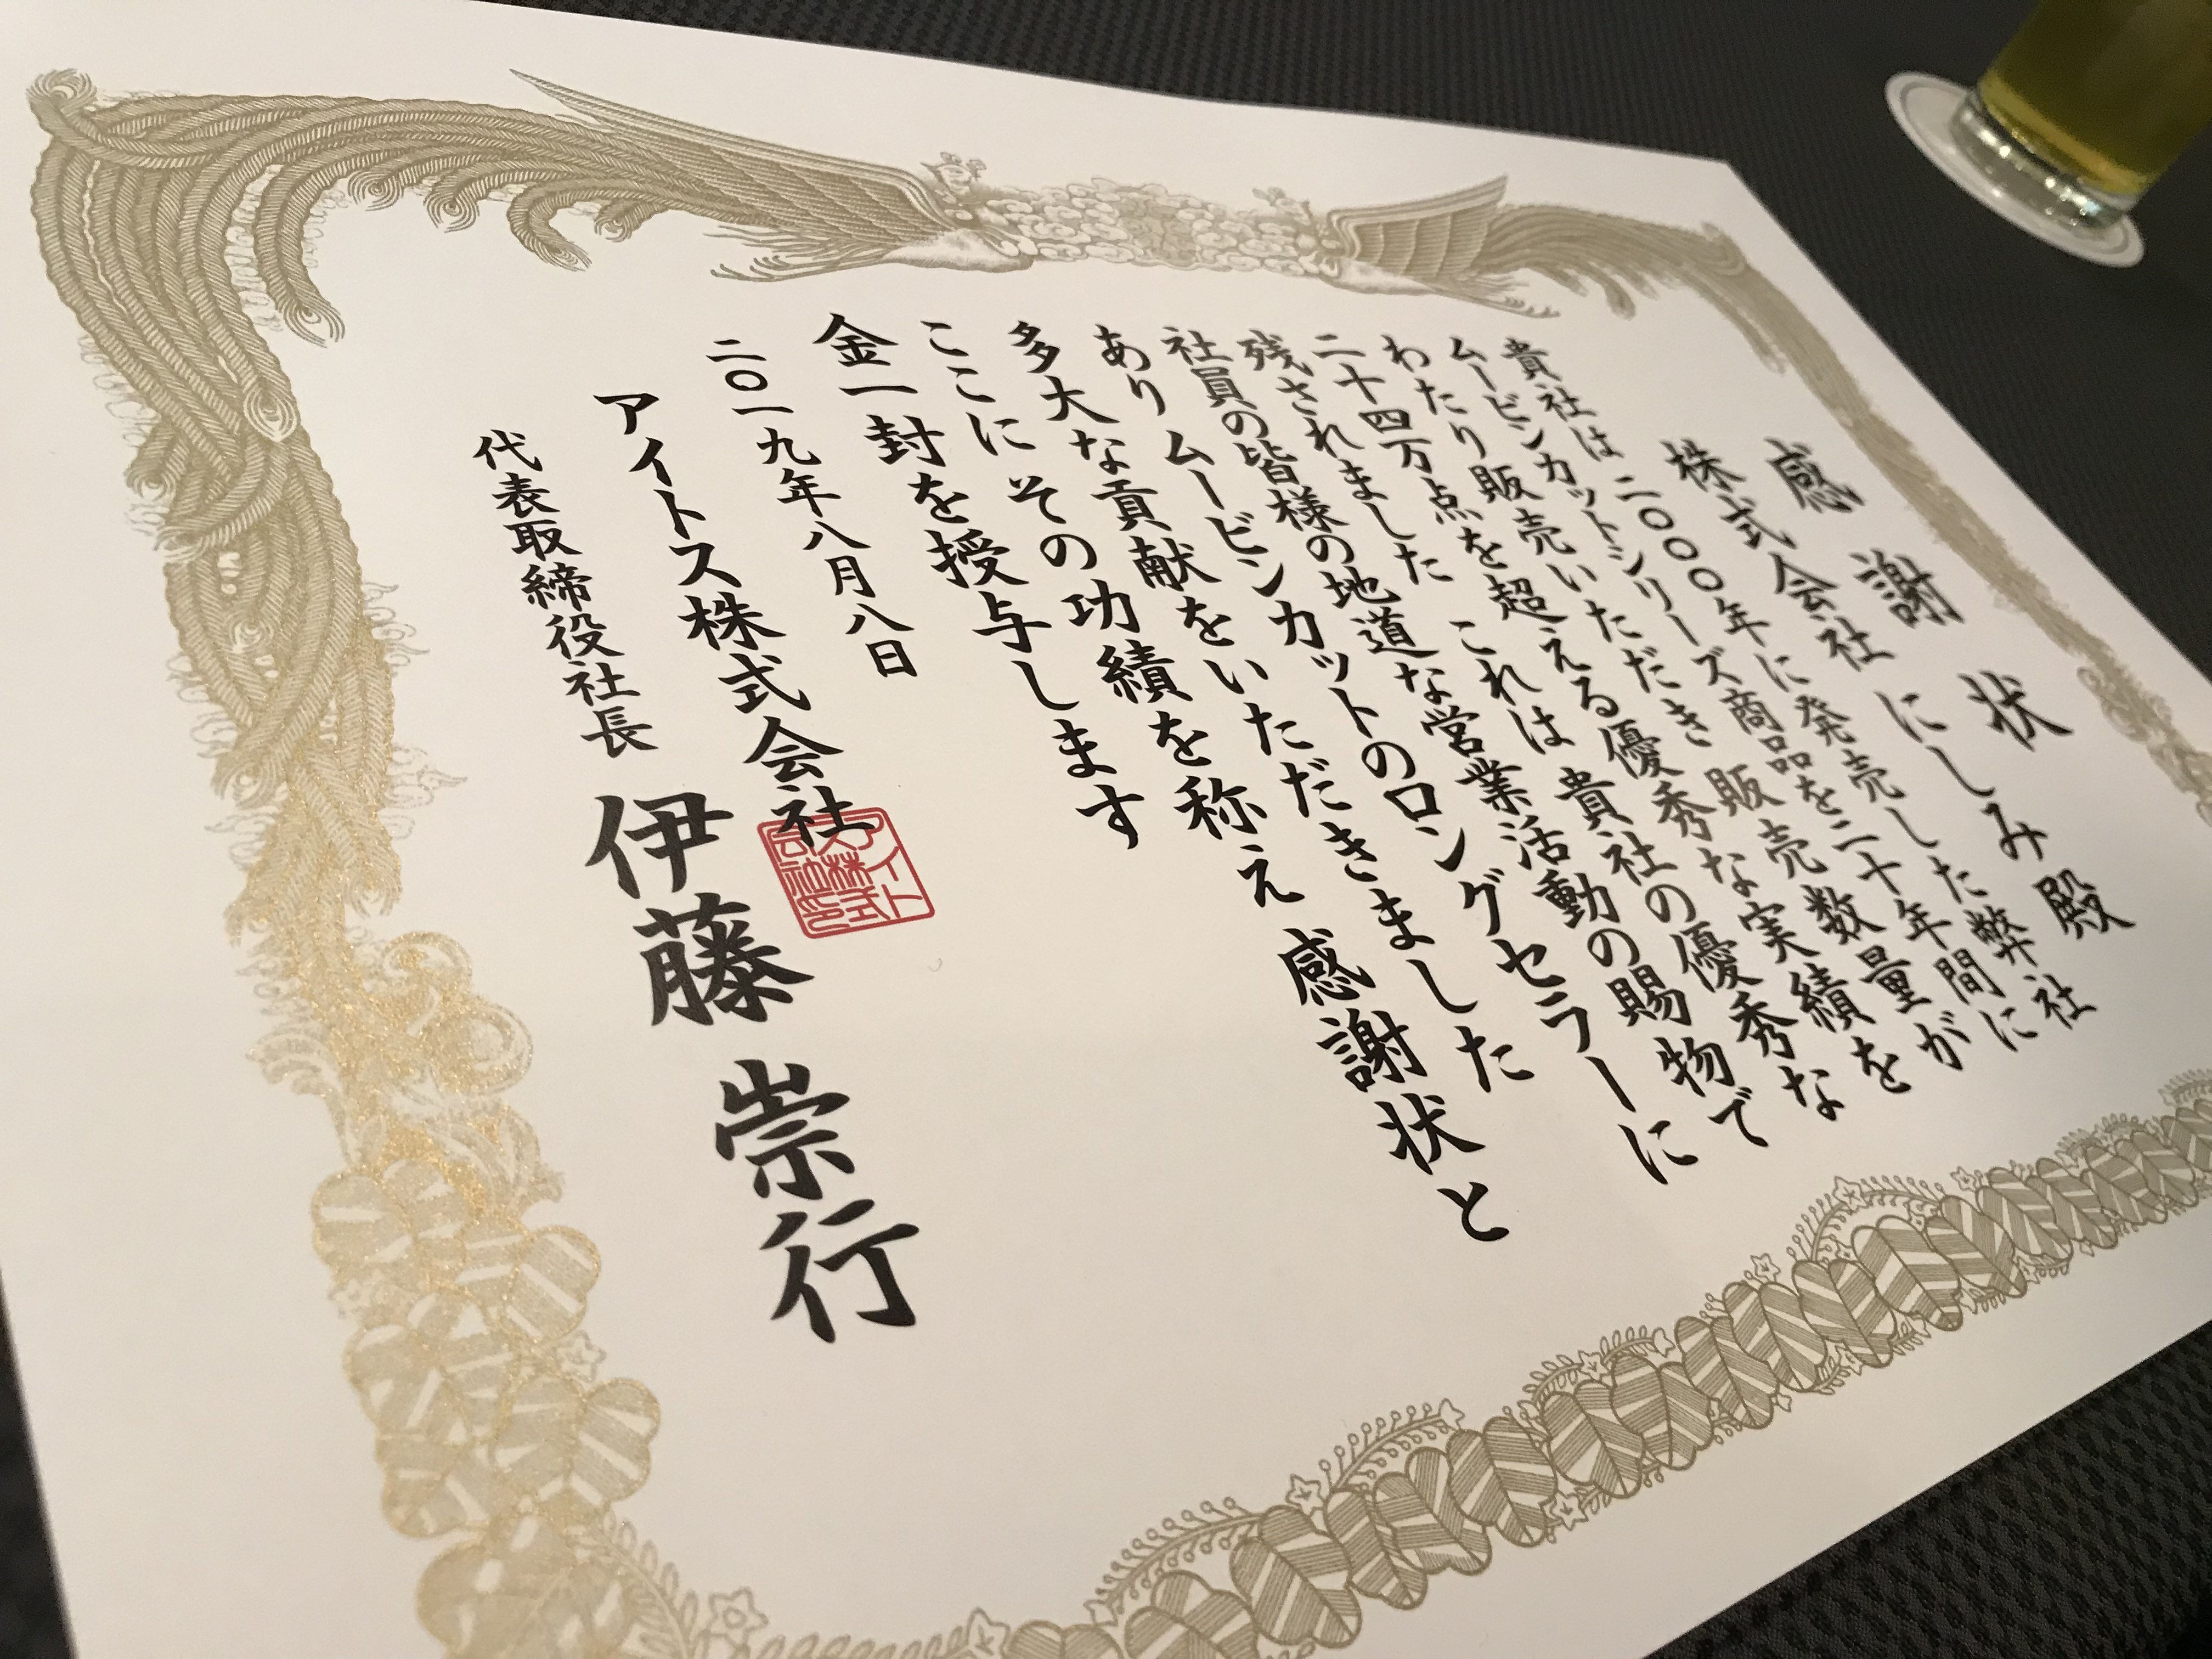 感謝状
株式会社 にしみ殿
貴社は二〇〇〇年に発売した弊社
ムービンカットシリーズ商品を二十年間に
わたり販売いただき 販売数量が
二十四万点を超える優秀な実績を
残されました これは貴社の優秀な
社員の皆様の地道な営業活動の賜物で
あり ムービンカットのロングセラーに
多大な貢献をいただきました
ここに その功績を称え 感謝状と
金一封を授与します
二〇一九年八月八日
アイトス株式会社
代表取締役社長 伊藤 崇行
アイト
ス株式
会社印